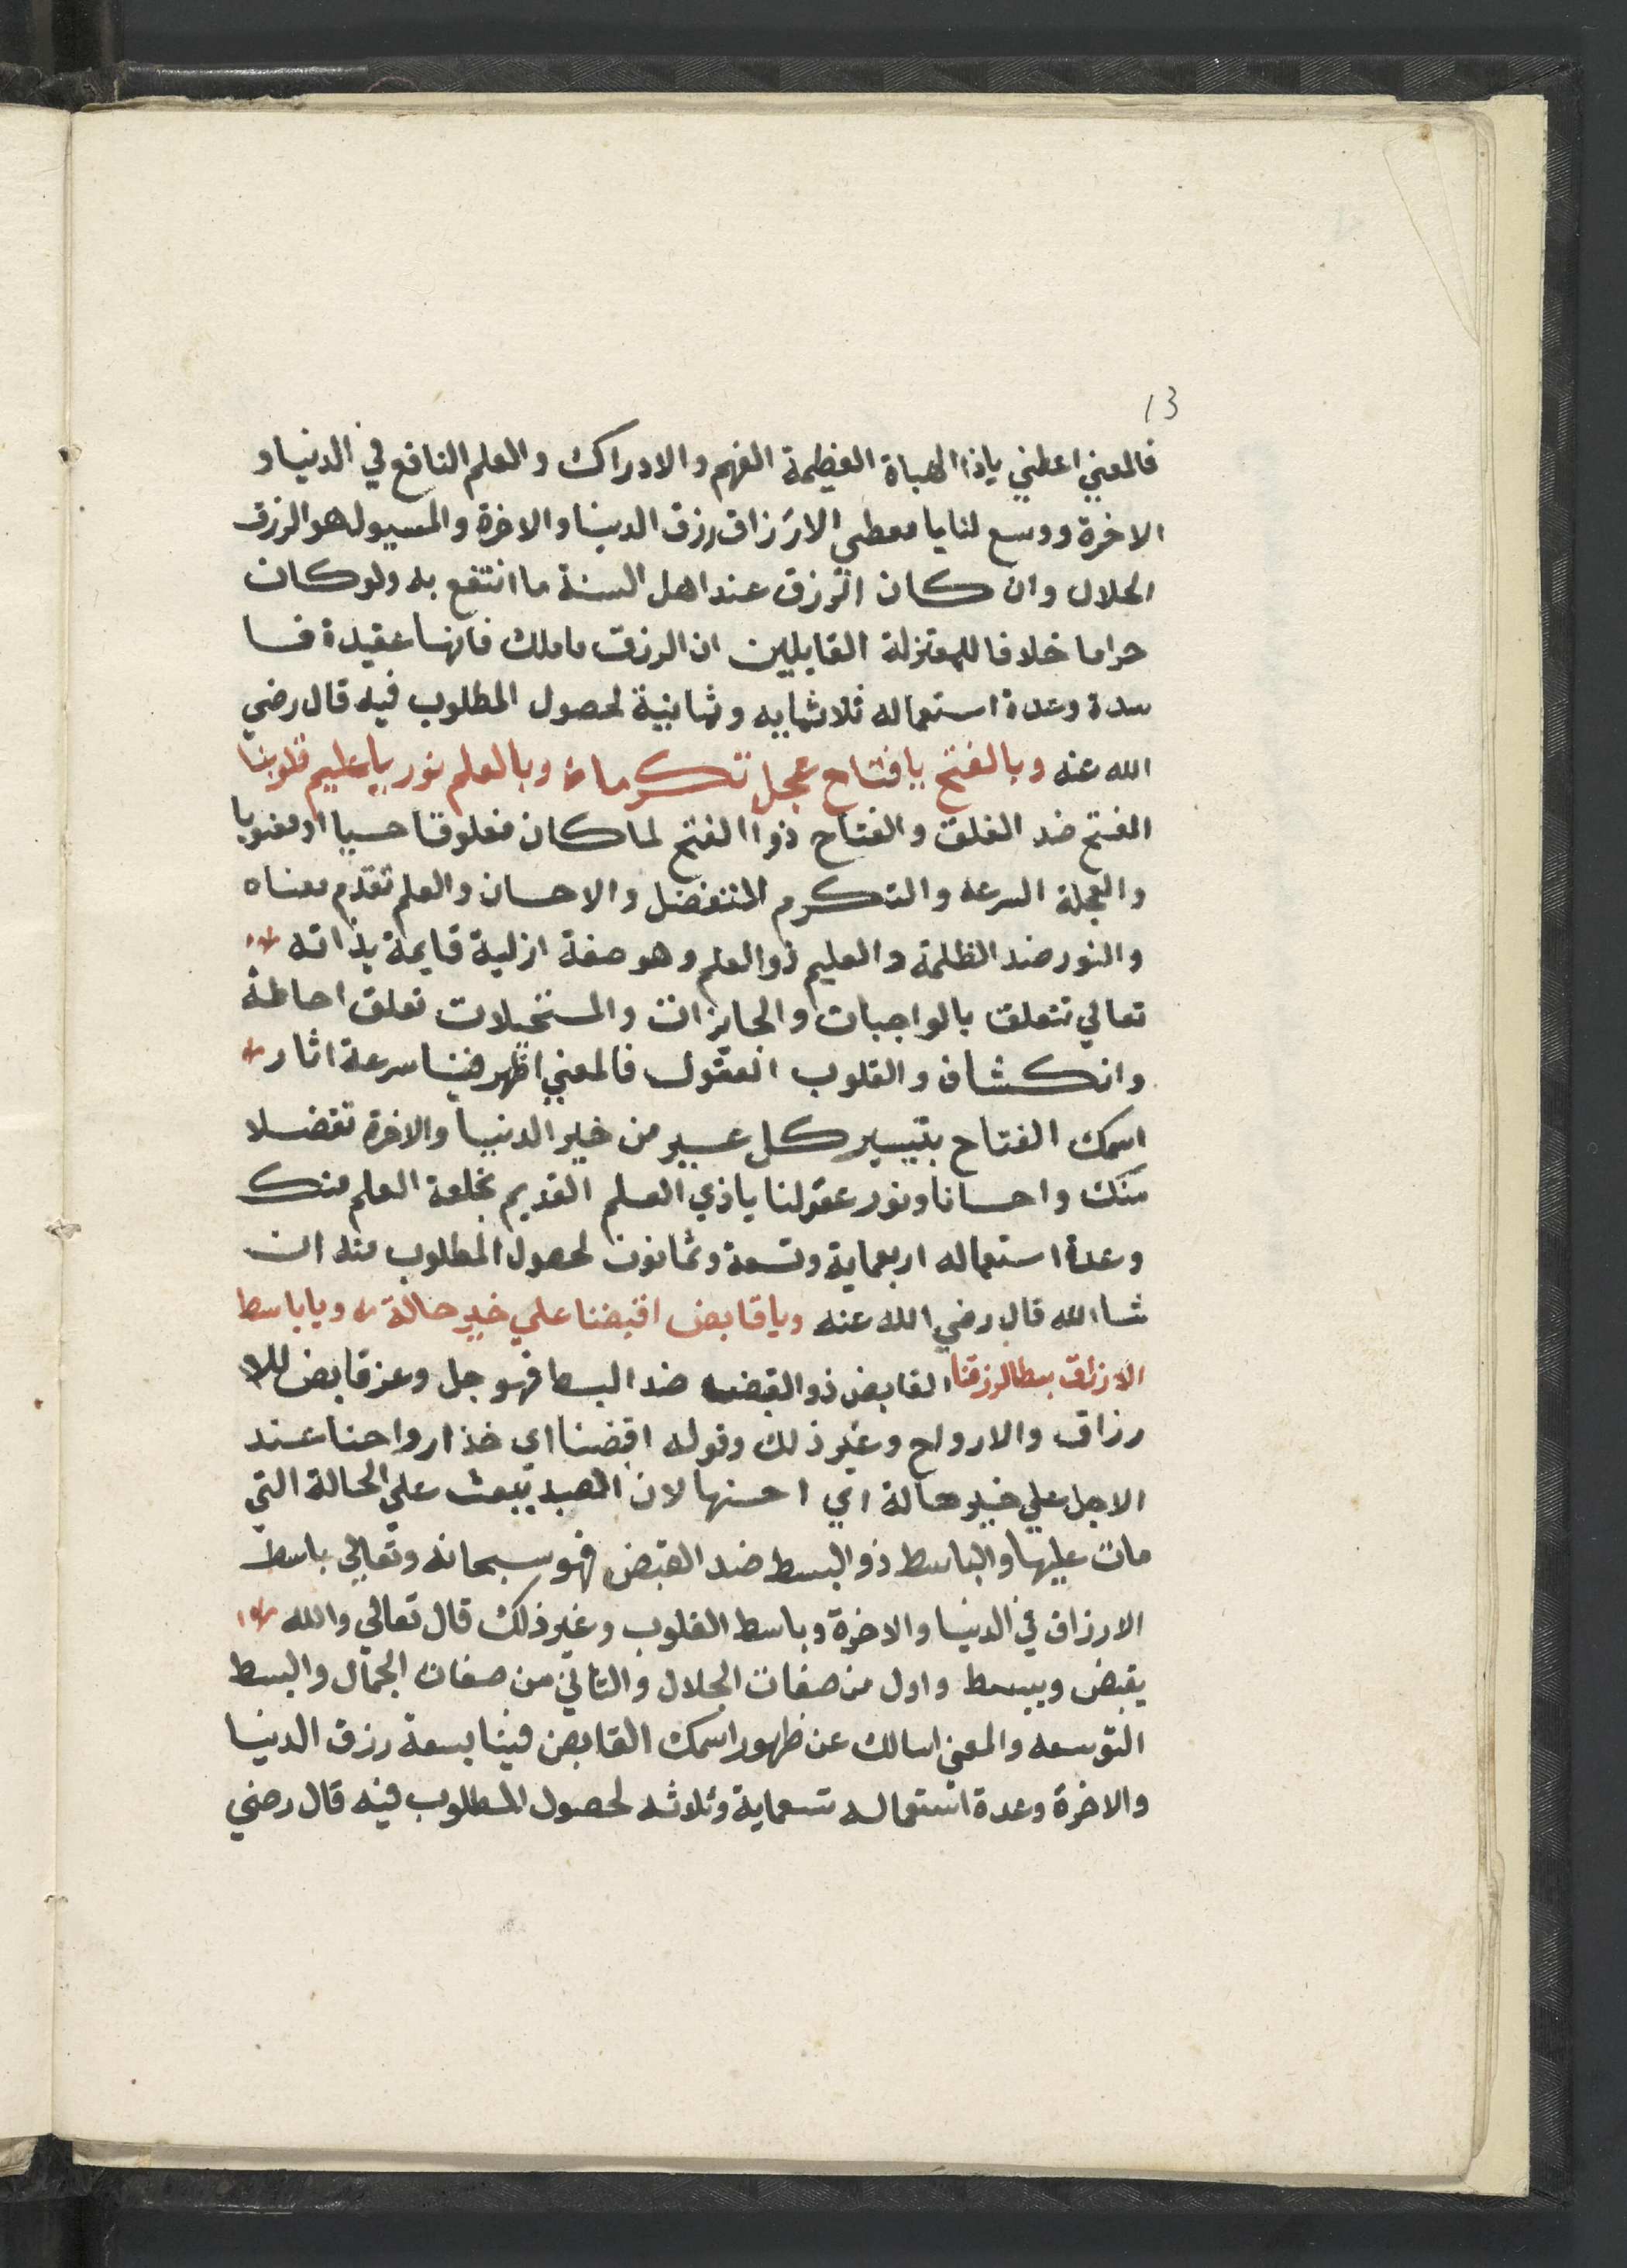 13
فالمعني اعطني ياذا الهباة العظيمة الفهم والادراك والعلم النافع في الدنيا و
الاخرة ووسع لنا يا معطي الارزاق رزق الدينا والاخرة والمسيول هو الرزق
الحلال وان كان الرزق عند اهل السنة ما انتفع به ولو كان
حراما خلافا للمعتزلة القايلين ان الرزق ما ملك فانها عقيدة فا
سدة وعدة استعماله ثلاثمايه وثمانية لحصول المطلوب فيه قال رضي
الله عنه وبالفتح يا فتاح عجل تكرما وبالعلم نور يا عليم قلوبنا
الفتح ضد الغلق والفتاح ذوا الفتح لما كان مغلوقا حسيا او معنويا
والعجلة السرعه والتكرم التفضل والاحسان والعلم تقدم معناه
والنور ضد الظلمة والعليم ذو العلم وهو صفة ازلية قايمة بذاته
تعالي تتعلق بالواجبات والجايزات والمستحيلات تعلق احاطة
وانكشاف والقلوب العقول فالمعني اظهر فينا سرعة اثار
اسمك الفتاح بتيسير كل عسير من خير الدنيا والاخرة تفضلا
منك واحسانا ونور عقولنا ياذي العلم القديم بخلعة العلم منك
وعدة استعماله اربعماية وتسعة وثمانون لحصول المطلوب منه ان
شا الله قال رضي الله عنه ويا قابض اقبضنا علي خير حالة ويا باسط
الارزاق بسطا لرزقنا القابض ذو القبض ضد البسط فهو جل وعز قابض للا
رزاق والارواح وغير ذلك وقوله اقبضنا اي خذ ارواحنا عند
الاجل علي خير حالة اي احسنها لان العبد يبعث علي الحالة التي
مات عليها والباسط ذو البسط ضد القبض فهو سبحانه وتعالي باسط
الارزاق في الدنيا والاخرة وباسط القلوب وغير ذلك قال تعالي والله
يقبض ويبسط واول من صفات الجلال والثاني من صفات الجمال والبسط
التوسعه والمعني اسالك عن ظهور اسمك القابض فينا بسعة رزق الدنيا
والاخرة وعدة استعماله تسعماية وثلاثه لحصول المطلوب فيه قال رضي